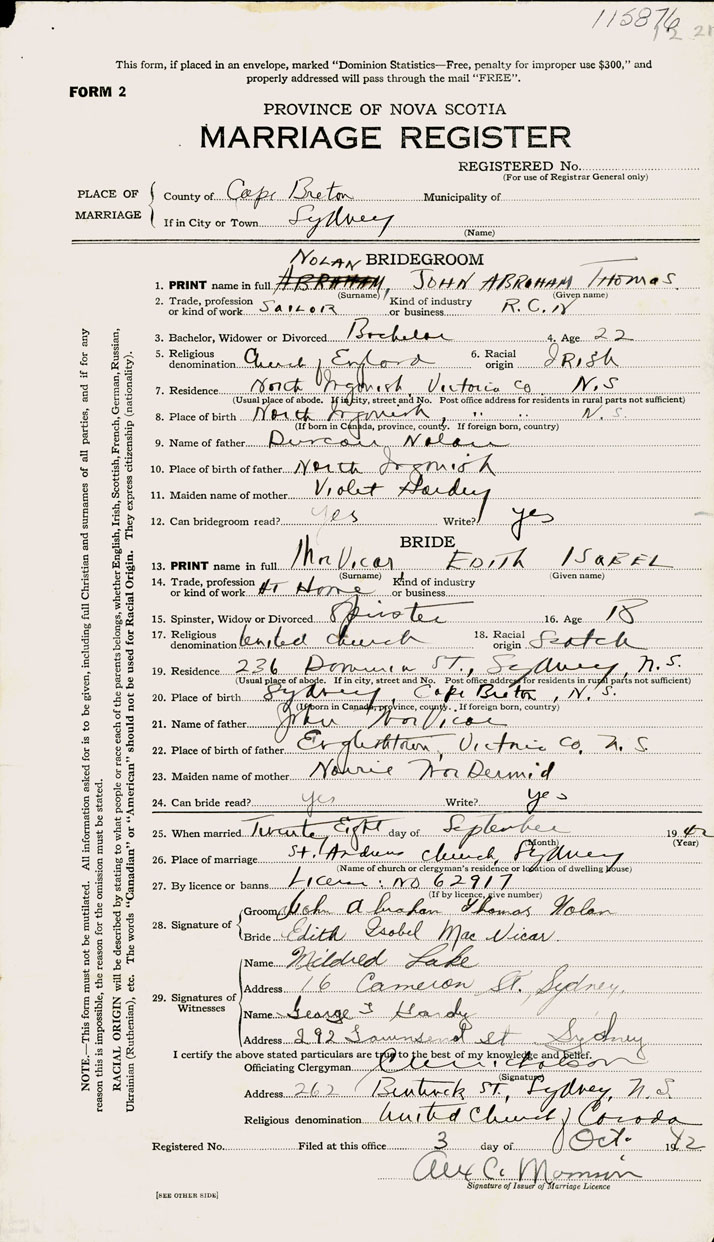 115876
This form, if placed in an envelope, marked "Dominion Statistics—Free, penalty for improper use $300," and
properly addressed will pass through the mail "FREE".
FORM 2
PROVINCE OF NOVA SCOTIA
MARRIAGE REGISTER
REGISTERED No.
(For use of Registrar General only)
PLACE OF MARRIAGE
County of Cape Breton Municipality of
If in City or Town Sydney
(Name)
BRIDEGROOM
NOLAN
1. PRINT name in full ABRAHAM, JOHN ABRAHAM THOMAS.
(Surname) (Given name)
2. Trade, profession or kind of work SAILOR Kind of industry or business R.C.N
3. Bachelor, Widower or Divorced Bachelor 4. Age 22
5. Religious denomination Church of England 6. Racial origin IRISH
7. Residence North Ingonish, Victoria Co N.S
(Usual place of abode. If in city, street and No. Post office address for residents in rural parts not sufficient)
8. Place of birth North Ingonish, " " N.S.
(If born in Canada, province, county. If foreign born, country)
9. Name of father Duncan Nolan
10. Place of birth of father North Ingonish
11. Maiden name of mother Violet Hardy
12. Can bridegroom read? yes Write? yes
BRIDE
13. PRINT name in full MacVicar, EDITH ISABEL
(Surname) (Given name)
14. Trade, profession or kind of work At Home Kind of industry or business
15. Spinster, Widow or Divorced Spinster 16. Age 18
17. Religious denomination United Church 18. Racial origin Scotch
19. Residence 236 Dominion ST., Sydney, N.S.
(Usual place of abode. If in city, street and No. Post office address for residents in rural parts not sufficient)
20. Place of birth Sydney, Cape Breton, N.S.
(If born in Canada, province, county. If foreign born, country)
21. Name of father John MacVicar
22. Place of birth of father Englishtown, Victoria Co. N.S.
23. Maiden name of mother MacDermid
24. Can bride read? yes Write? yes
25. When married Twenty Eight day of September 1942
(Month) (Year)
26. Place of marriage St. Andrews Church, Sydney
(Name of church or clergyman's residence or location of dwelling house)
27. By licence or banns License: NO 62917
(If by licence, give number)
28. Signature of
Groom John Abraham Thomas Nolan
Bride Edith Isobel Mac Vicar.
29. Signatures of Witnesses
Name Mildred Lake
Address 16 Cameron St. Sydney.
Name George F Hardy
Address 292 Townsend St Sydney
I certify the above stated particulars are true to the best of my knowledge and belief.
Officiating Clergyman
(Signature)
Address 262 Bentinck ST., Sydney, N.S.
Religious denomination United Church of Canada
Registered No. Filed at this office 3 day of Oct. 1942
Alex C.
Signature of Issuer of Marriage Licence
[SEE OTHER SIDE]
NOTE.—This form must not be mutilated. All information asked for is to be given, including full Christian and surnames of all parties, and if for any
reason this is impossible, the reason for the omission must be stated.
RACIAL ORIGIN will be described by stating to what people or race each of the parents belongs, whether English, Irish, Scottish, French, German, Russian,
Ukrainian (Ruthenian), etc. The words "Canadian" or "American" should not be used for Racial Origin. They express citizenship (nationality).